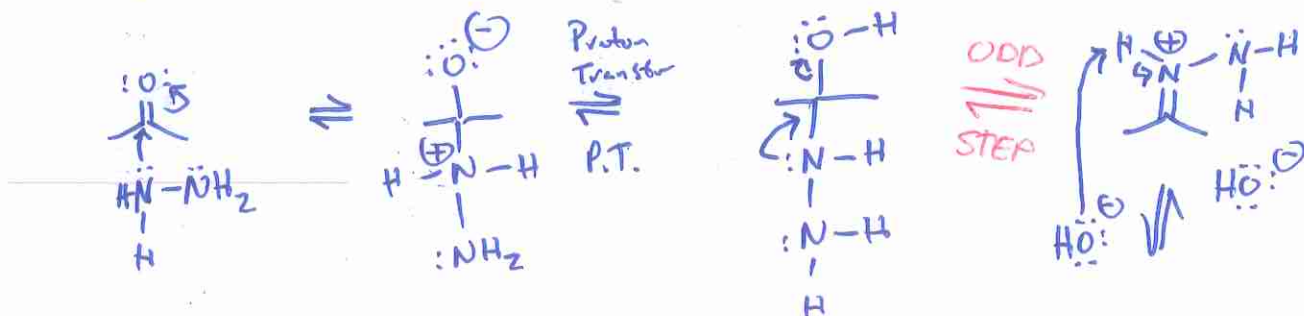 :O:
HN̈-N̈H₂
H
⇌
:Ö: ⊖
⊕
H-N-H
:NH₂
Proton
Transfer
⇌
P.T.
:Ö-H
:N-H
:N-H
H
ODD
⇌
STEP
H ⊕ N=N̈-H
H
HÖ: ⊖
HÖ: ⊖